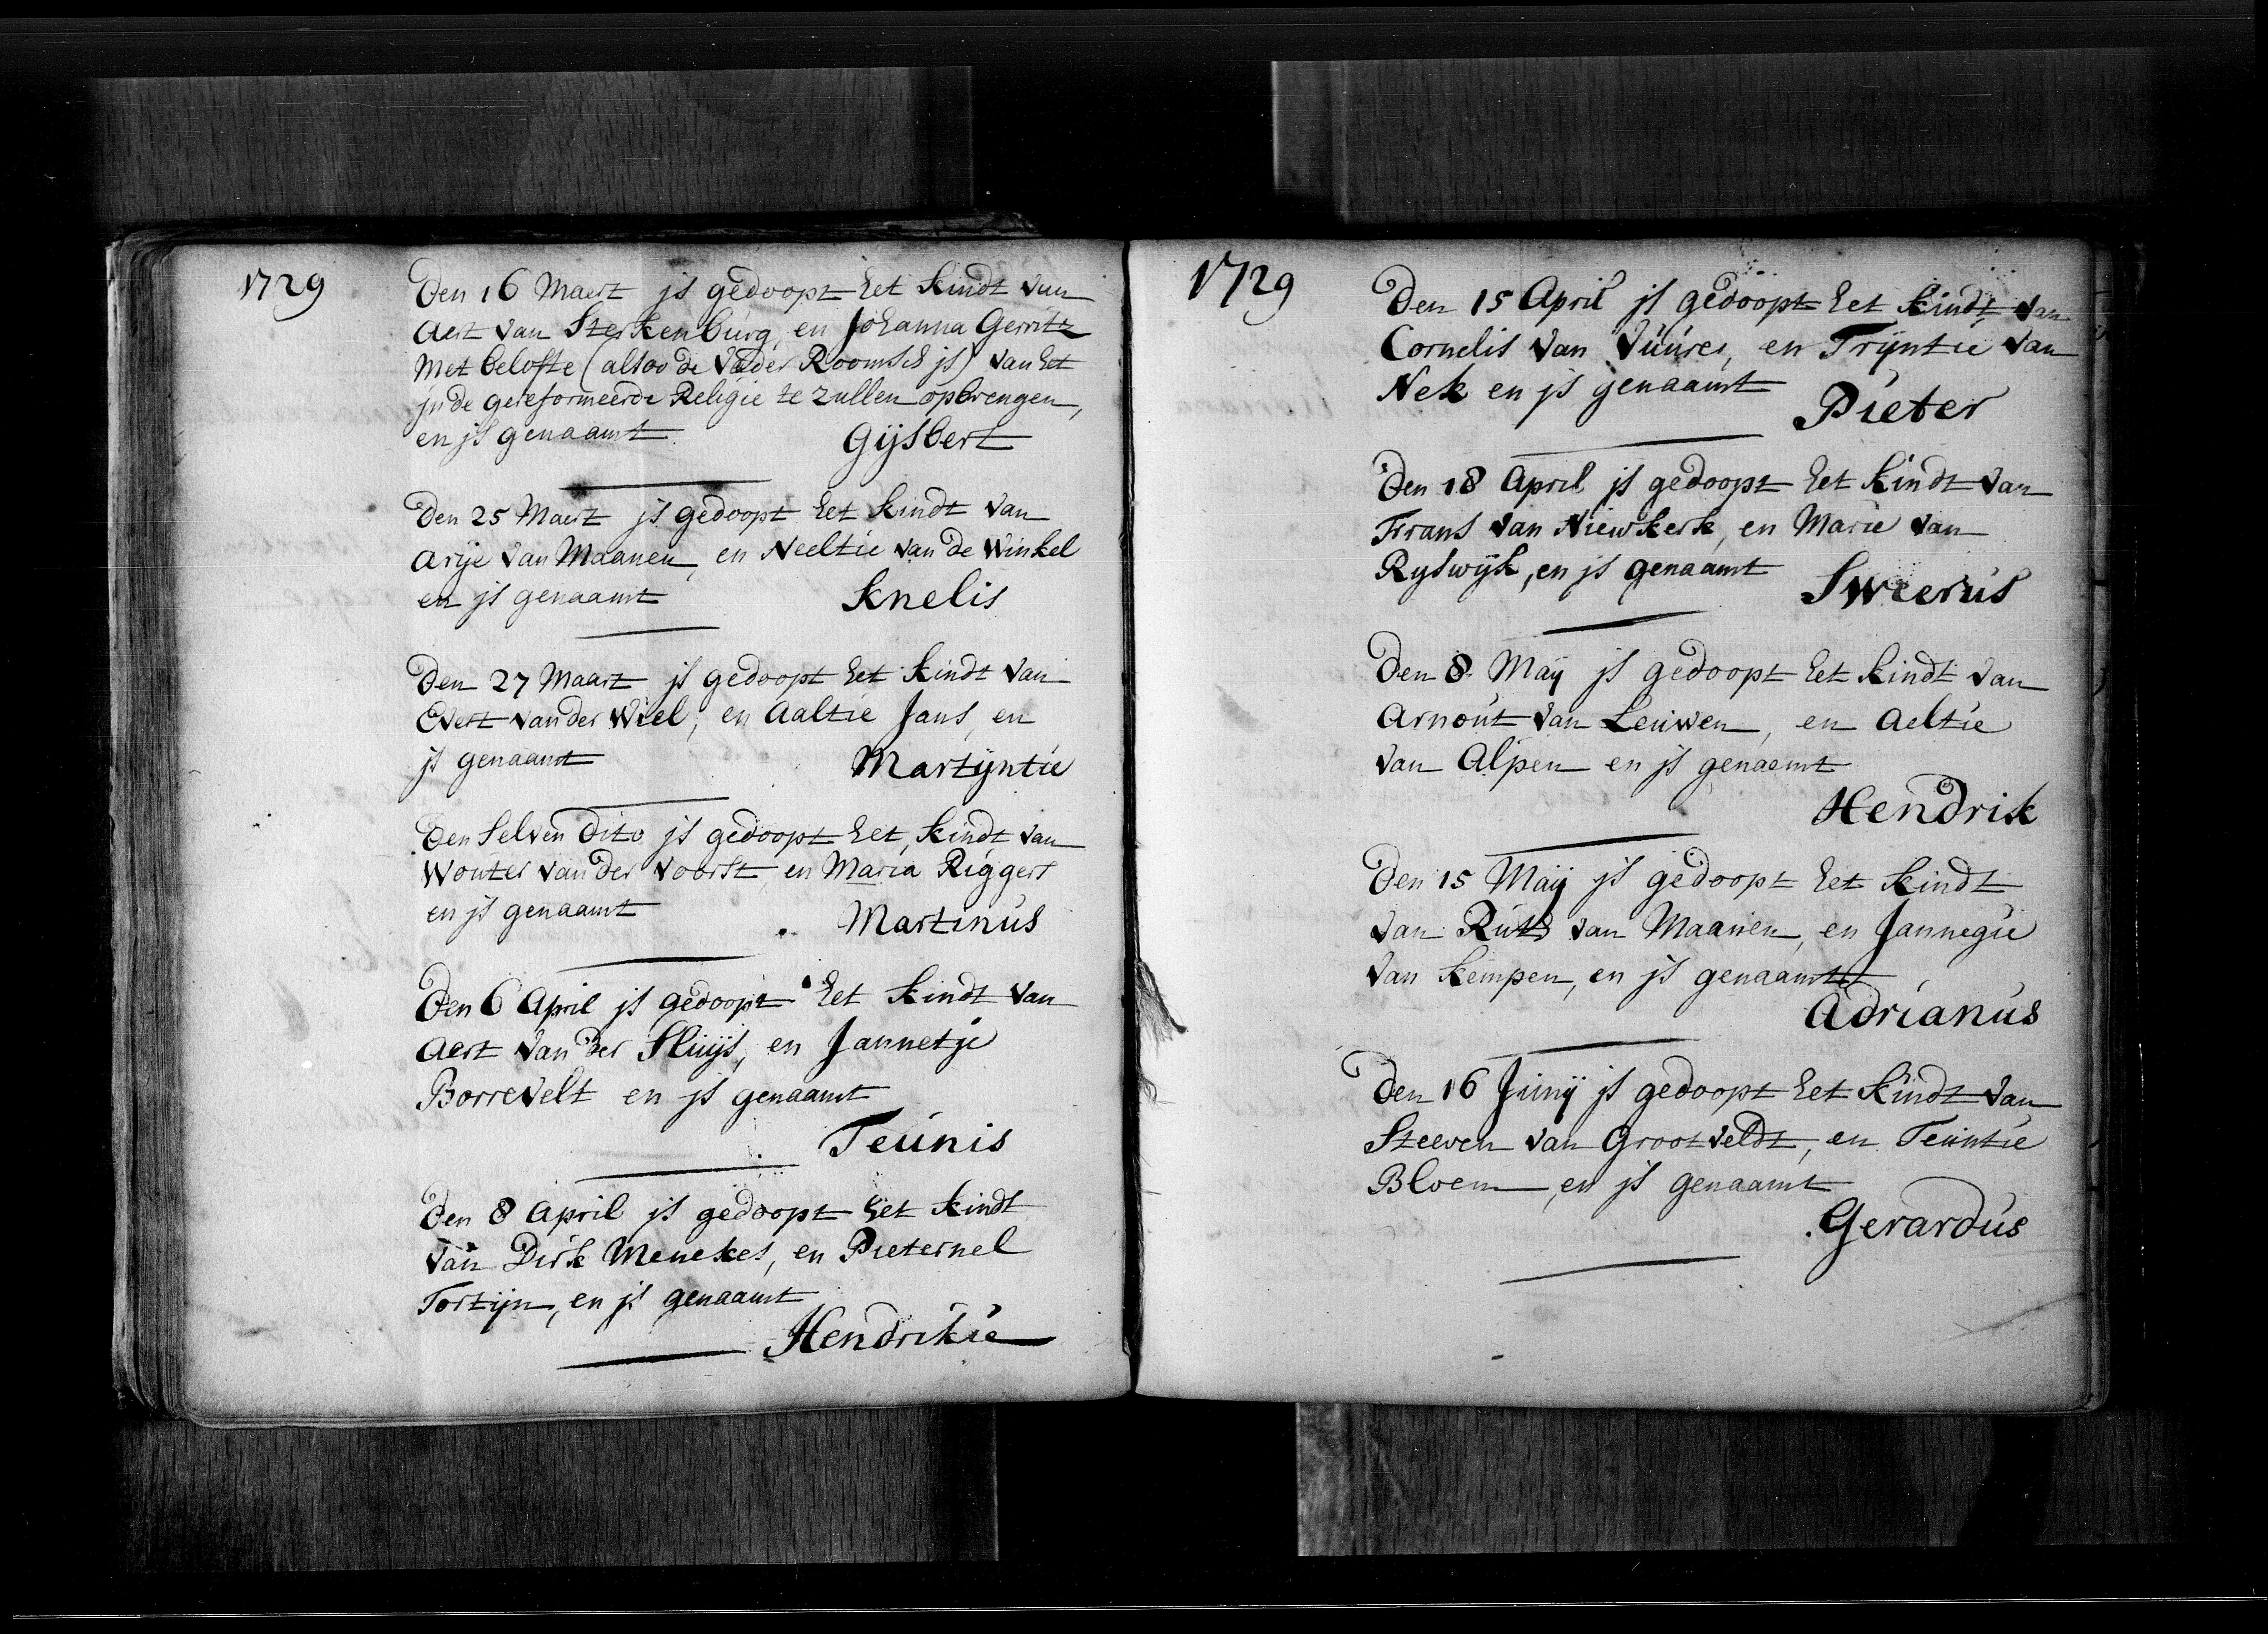 1729
Den 16 Maert js gedoopt het kindt van
Aert van Sterkenburg, en Johanna Gerritz
Met belofte (alsoo de Vader Roomsch js) van het
jn de gereformeerde Religie te zullen opbrengen,
en js genaamt Gijsbert
Den 25 Maert js gedoopt het kindt van
Arije van Maanen, en Neeltie van de Winkel
en js genaamt Knelis
Den 27 Maart js gedoopt het kindt van
Evert van der Wiel, en Aaltie Jans, en
js genaamt Martijntie
Den selven dito js gedoopt het kindt van
Wouter van der Voorst, en Maria Riggers
en js genaamt Martinus
Den 6 April js gedoopt het kindt van
Aert van der Sluijs, en Jannetje
Borrevelt en js genaamt
Teunis
Den 8 April js gedoopt het kindt
van Dirk Menekes, en Pieternel
Tortijn, en js genaamt
Hendrikie
1729
Den 15 April js gedoopt het kindt van
Cornelis van Vuures, en Trijntie van
Nek en js genaamt Pieter
Den 18 April js gedoopt het kindt van
Frans van Niewkerk, en Marie van
Ryswijk, en js genaamt Sweerus
Den 8 Maij js gedoopt het kindt van
Arnout van Leuwen, en Aeltie
van Alpen en js genaemt
Hendrik
Den 15 Maij js gedoopt het kindt
van Ruth van Maanen, en Jannegie
van Kempen, en js genaamt
Adrianus
Den 16 Junij js gedoopt het kindt van
Steeven van Grootveldt, en Teuntie
Bloem, en js genaamt
Gerardus